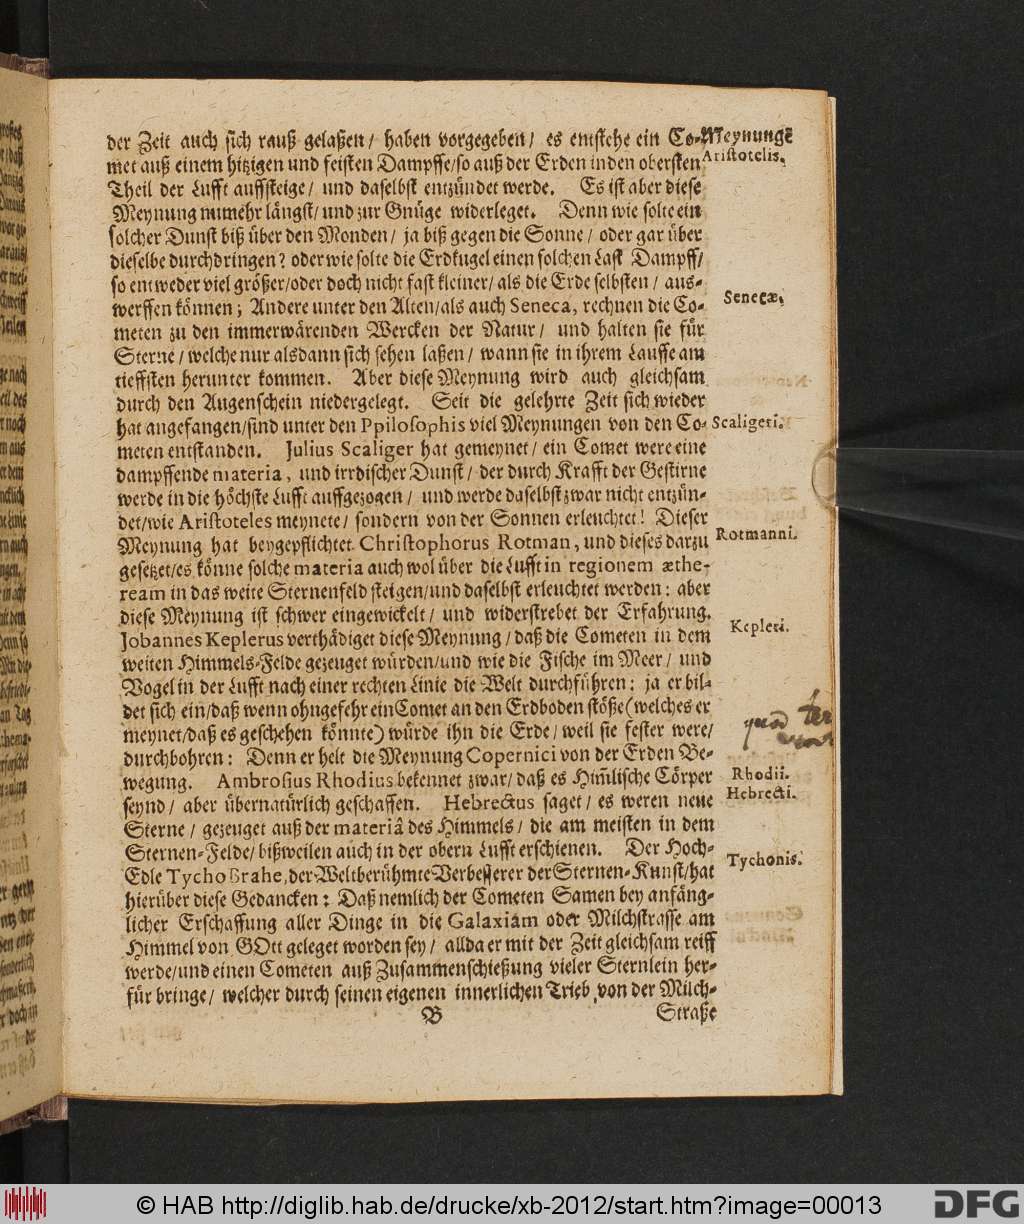 der Zeit auch sich rauß gelaßen / haben vorgegeben / es entstehe ein Co-
Meynungẽ
met auß einem hitzigen und feisten Dampffe / so auß der Erden in den obersten
Aristotelis.
Theil der Lufft auffsteige / und daselbst entzündet werde. Es ist aber diese
Meynung numehr längst / und zur Gnüge widerleget. Denn wie solte ein
solcher Dunst biß über den Monden / ja biß gegen die Sonne / oder gar über
dieselbe durchdringen? oder wie solte die Erdkugel einen solchen Last Dampff /
so entweder viel größer / oder doch nicht fast kleiner / als die Erde selbsten / aus-
werffen können; Andere unter den Alten / als auch Seneca, rechnen die Co-
Senecæ.
meten zu den immerwärenden Wercken der Natur / und halten sie für
Sterne / welche nur alsdann sich sehen laßen / wann sie in ihrem Lauffe am
tieffsten herunter kommen. Aber diese Meynung wird auch gleichsam
durch den Augenschein niedergelegt. Seit die gelehrte Zeit sich wieder
hat angefangen / sind unter den Ppilosophis viel Meynungen von den Co-
Scaligeri.
meten entstanden. Julius Scaliger hat gemeynet / ein Comet were eine
dampffende materia, und irrdischer Dunst / der durch Krafft der Gestirne
werde in die höchste Lufft auffgezogen / und werde daselbst zwar nicht entzün-
det / wie Aristoteles meynete / sondern von der Sonnen erleuchtet! Dieser
Meynung hat beygepflichtet Christophorus Rotman, und dieses darzu
Rotmanni.
gesetzet / es könne solche materia auch wol über die Lufft in regionem æthe-
ream in das weite Sternenfeld steigen / und daselbst erleuchtet werden: aber
diese Meynung ist schwer eingewickelt / und widerstrebet der Erfahrung.
Johannes Keplerus verthädiget diese Meynung / daß die Cometen in dem
Kepleri.
weiten Himmels-Felde gezeuget würden / und wie die Fische im Meer / und
Vogel in der Lufft nach einer rechten Linie die Welt durchführen: ja er bil-
det sich ein / daß wenn ohngefehr ein Comet an den Erdboden stöße (welches er
meynet / daß es geschehen könnte) würde ihn die Erde / weil sie fester were /
durchbohren: Denn er helt die Meynung Copernici von der Erden Be-
wegung. Ambrosius Rhodius bekennet zwar / daß es Him̃lische Cörper
Rhodii.
seynd / aber übernatürlich geschaffen. Hebrectus saget / es weren neue
Hebrecti.
Sterne / gezeuget auß der materiâ des Himmels / die am meisten in dem
Sternen-Felde / bißweilen auch in der obern Lufft erschienen. Der Hoch-
Edle Tycho Brahe, der Weltberühmte Verbesserer der Sternen-Kunst / hat
Tychonis.
hierüber diese Gedancken: Daß nemlich der Cometen Samen bey anfäng-
licher Erschaffung aller Dinge in die Galaxiam oder Milchstrasse am
Himmel von GOtt geleget worden sey / allda er mit der Zeit gleichsam reiff
werde / und einen Cometen auß Zusammenschießung vieler Sternlein her-
für bringe / welcher durch seinen eigenen innerlichen Trieb, von der Milch-
B
Straße
© HAB http://diglib.hab.de/drucke/xb-2012/start.htm?image=00013
DFG